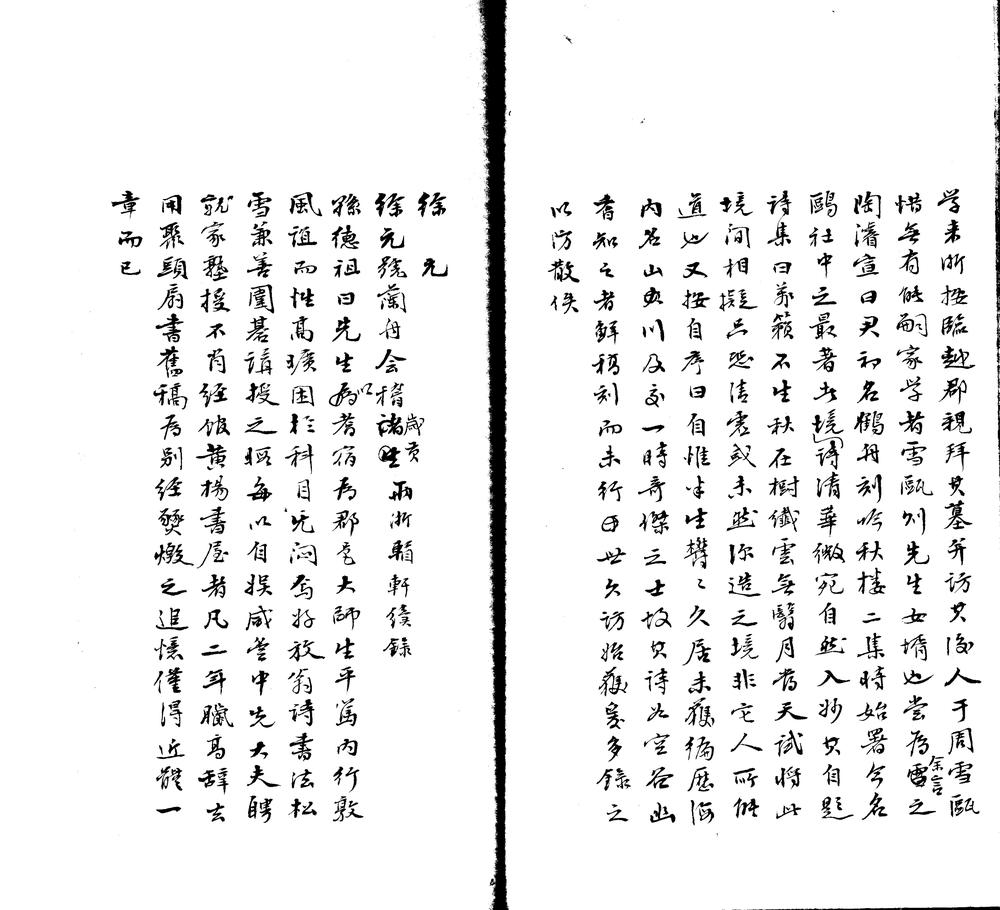 学来所按臨越郡親拜其墓并访其後人于周雪瓯
惜無有能嗣家学者雪瓯則先生女壻也尝為余言之
陶濬宣曰尹初名鶴舟刻吟秋楼二集時始署今名
鷗社中之最著者境詩清華微宛自然入妙其自題
詩集曰萬籟不生秋在樹纖雲無翳月當天試將此
境间相擬只恐清虚或未然深造之境非它人所能
道也又按自序曰自惟半生鬱〻久居未獲徧歷海
内名山大川及交一時奇傑之士故其詩如空谷幽
香知之者鮮稿刻而未行世久访始獲爰多録之
以防散佚
徐元
徐元號蘭舟会稽歲貢两浙輶軒續錄
孫德祖曰先生以耆宿为郡邑大師生平篤内行敦
風谊而性高曠困于科目无闷焉好放翁詩書法松
雪兼善圍碁講授之暇每以自娱咸豐中先大夫聘
就家塾授不肖经館黄楊書屋者凡二年臘高辞去
用聚頭扇書舊稿为别经燹燬之追憶僅得近體一
章而已